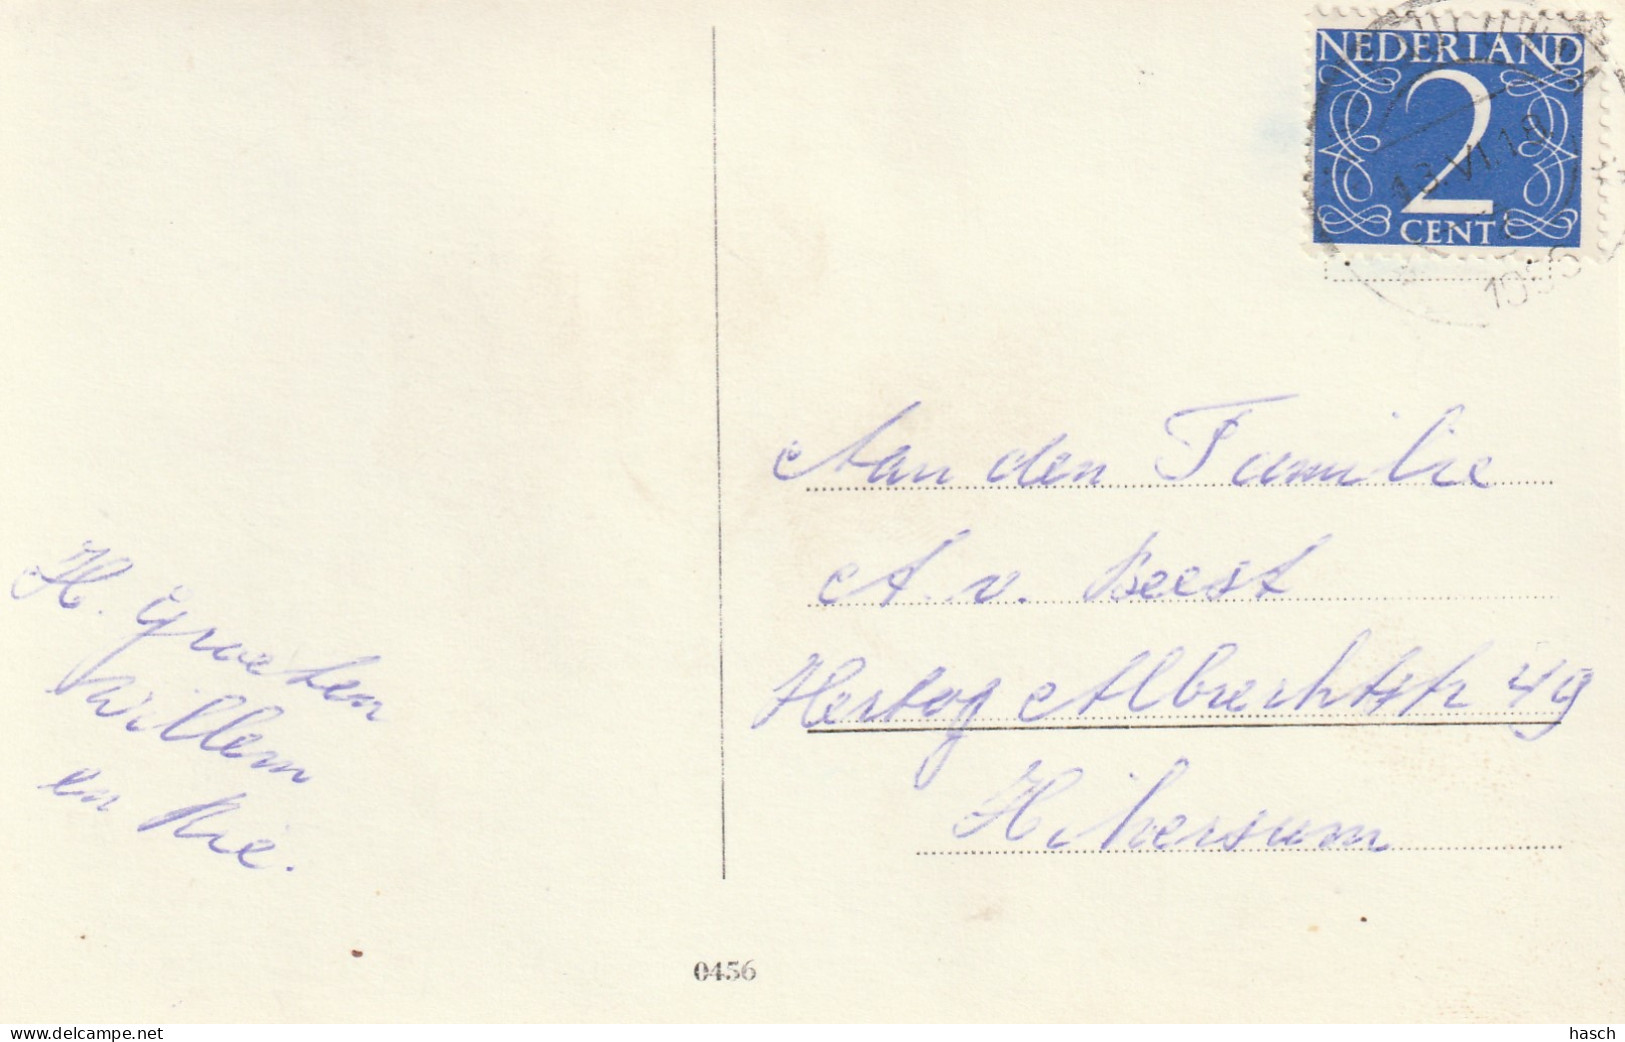 NEDERLAND
2
CENT
13.VI.18
1956
Aan den Familie
A. v. Beest
Hertog Albrechtstr 49
Hilversum
H. Groeten
Willem
en Rie.
0456
www.delcampe.net
hasch